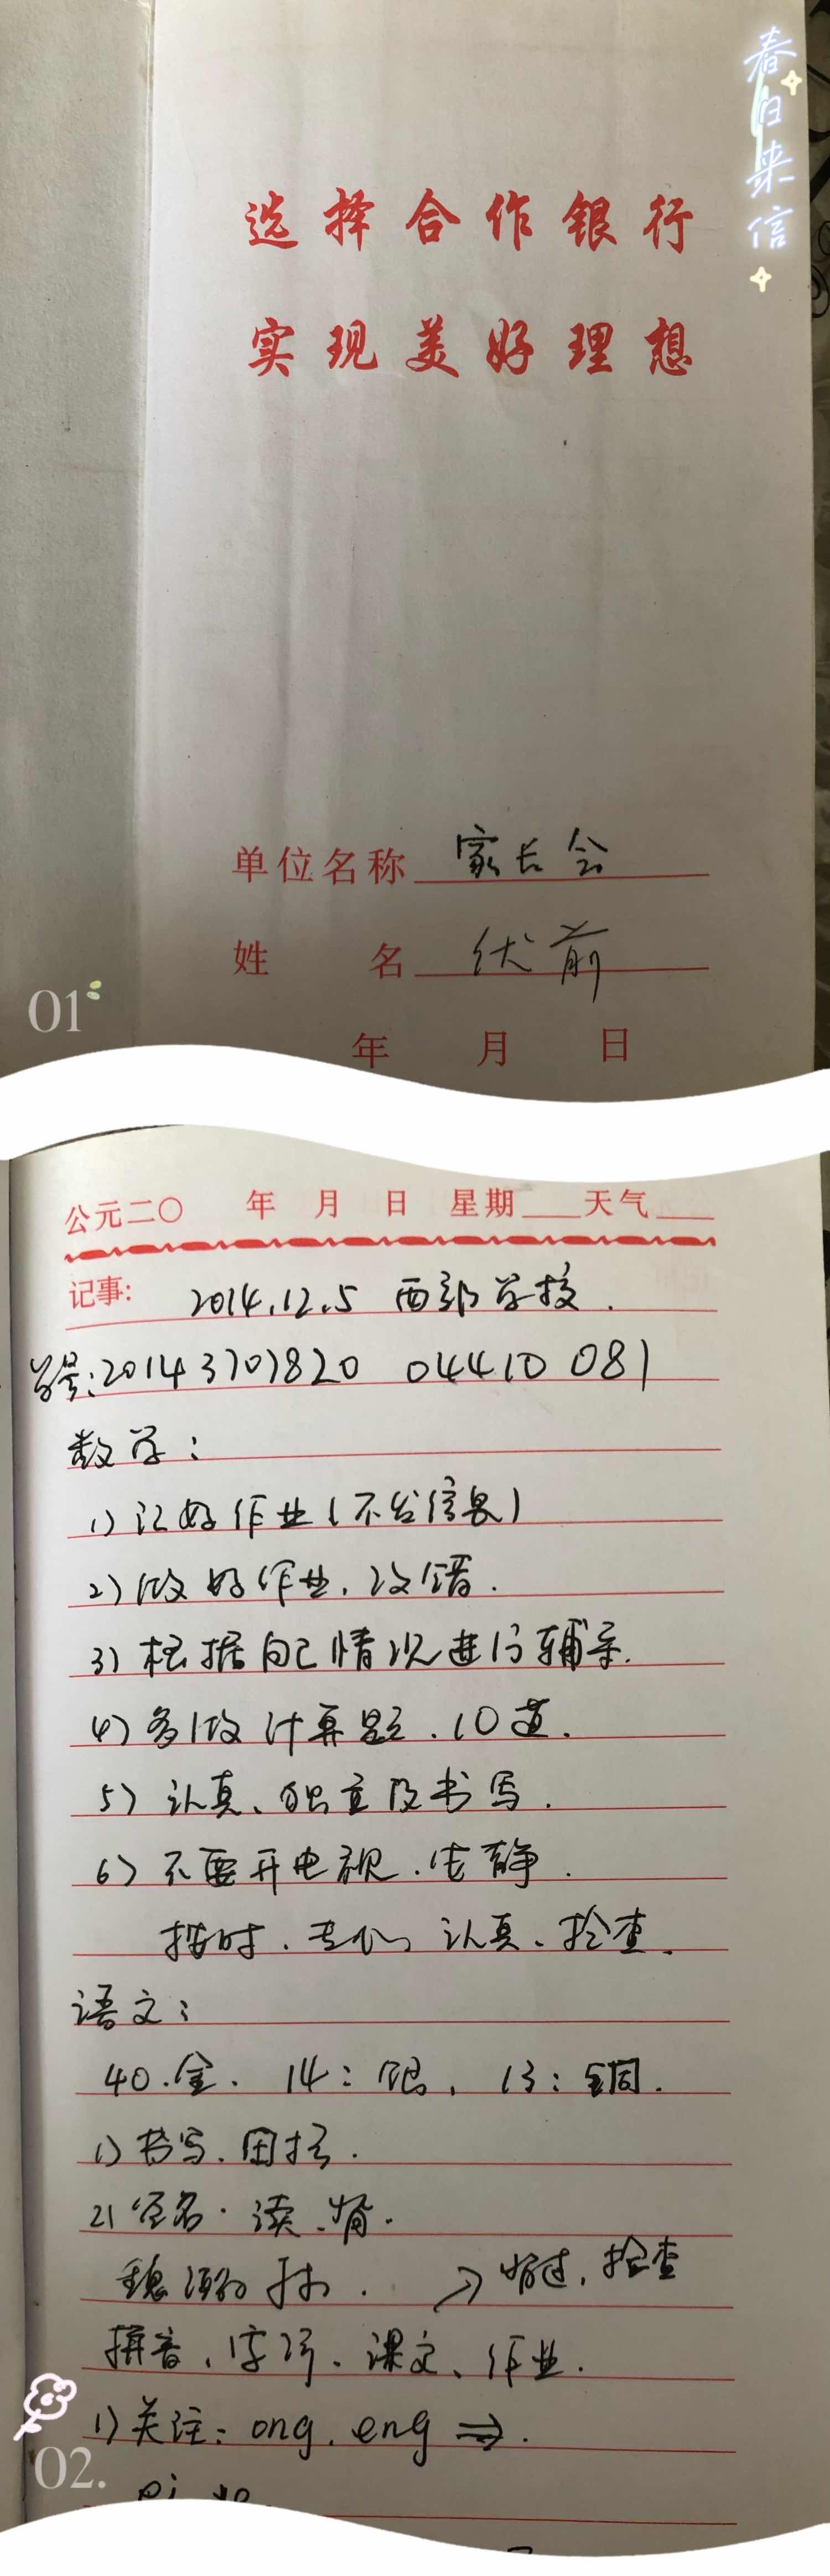 春日来信
选择合作银行
实现美好理想
单位名称 家长会
姓名 伏前
年 月 日
01
公元二〇 年 月 日 星期 天气
记事: 2014.12.5 西部学校.
学号:20143707820 04410 081
数学:
1) 记好作业(不发信息)
2) 做好作业.改错.
3) 根据自己情况进行辅导.
4) 多做计算题.10道.
5) 认真、独立及书写.
6) 不要开电视.安静.
按时.专心、认真、检查.
语文:
40.金. 14:银. 13:铜.
1) 书写.田格.
2) 签名.读.背.
→背过.检查
拼音、字词、课文、作业.
1) 关注: ong.eng ⇒.
02.